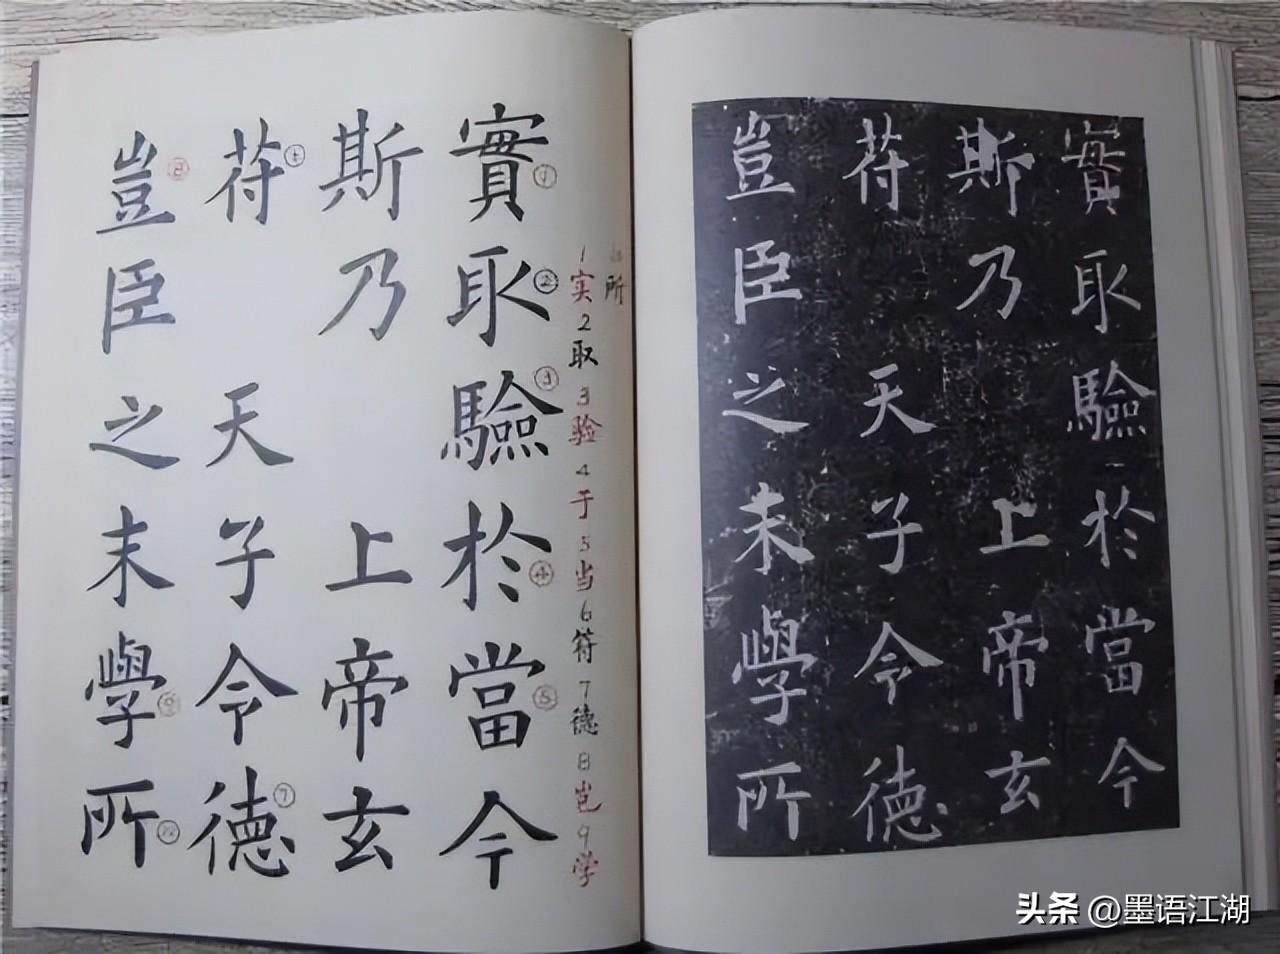 實取驗於當今
斯乃 上帝玄
符 天子令德
豈臣之末學所
所
1实2取3验4于5当6符7德8岂9学
實①取②驗③於④當⑤今
斯乃 上帝玄
符 天子令德⑦
豈⑧臣之末學⑨所
头条 @墨语江湖